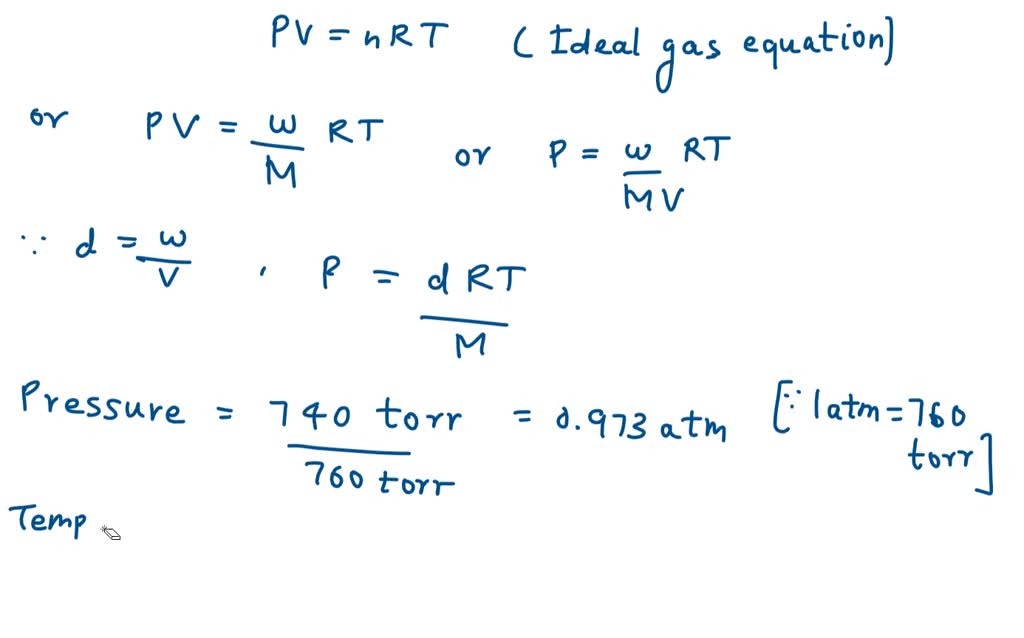 PV = nRT (Ideal gas equation]
or PV = w/M RT or P = w/MV RT
∵ d = w/V , P = dRT/M
Pressure = 740 torr/760 torr = 0.973 atm [∵ 1atm = 760
torr]
Temp